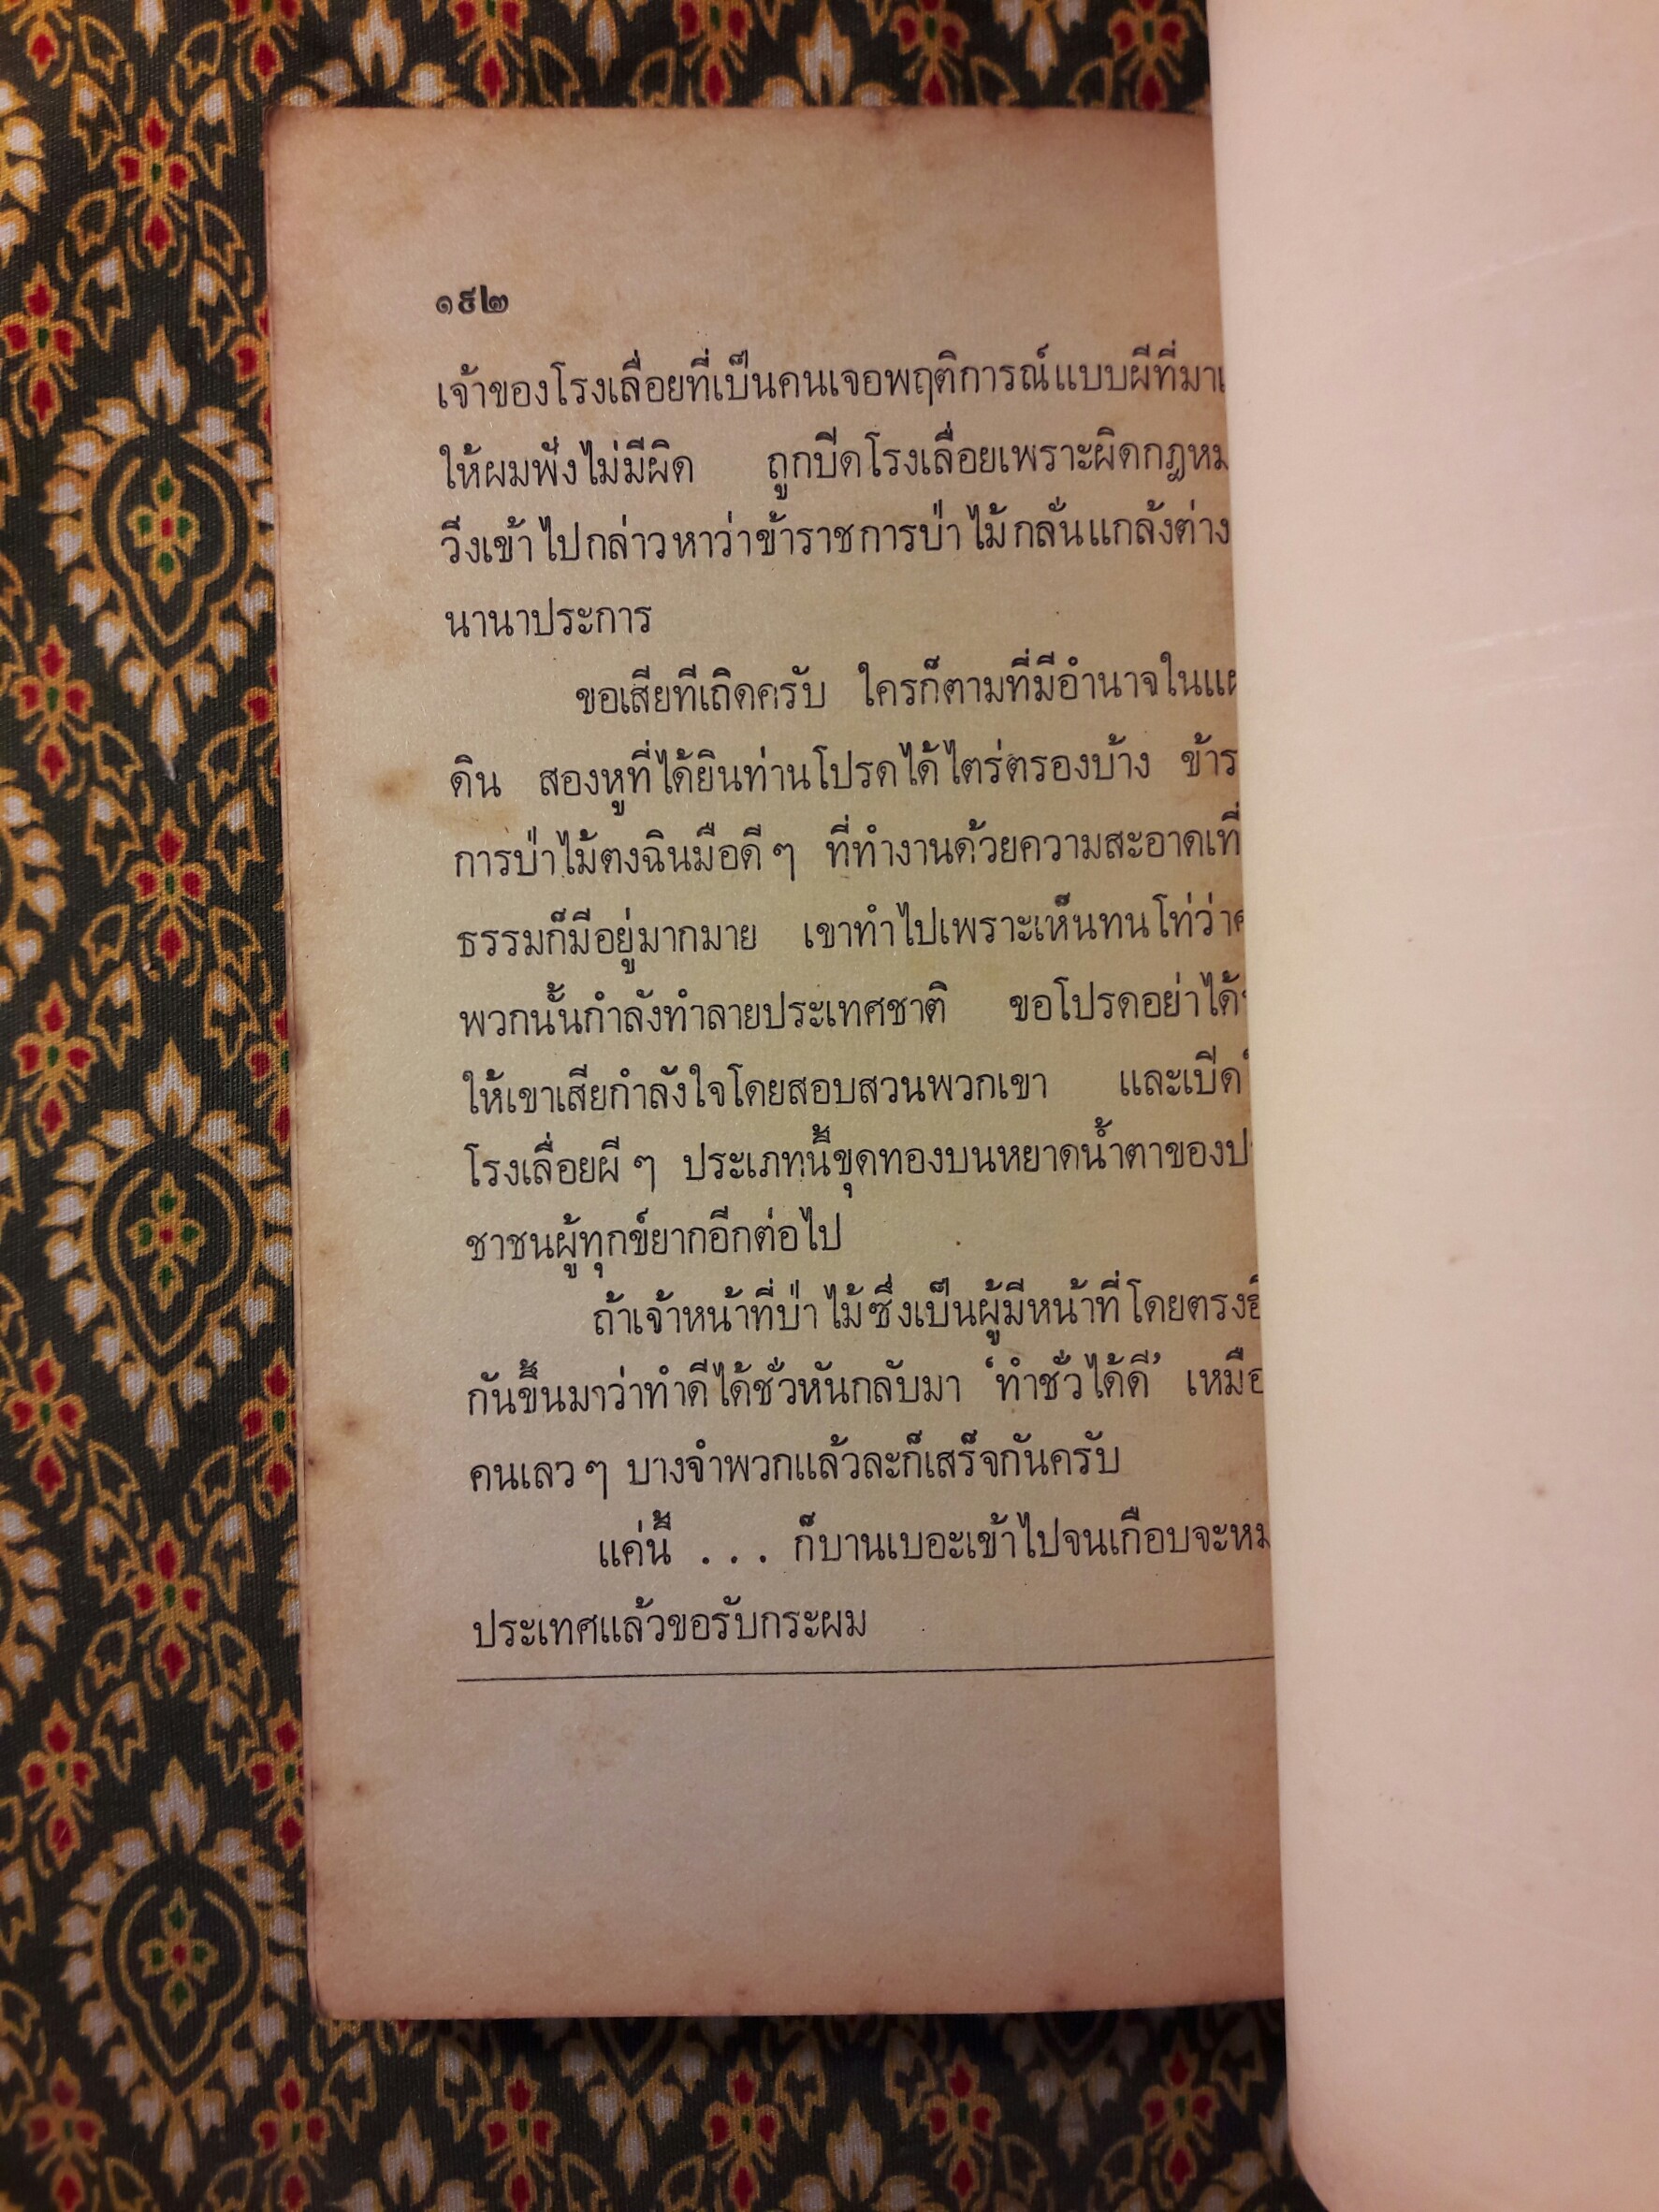 ๑๕๒
เจ้าของโรงเลื่อยที่เป็นคนเจอพฤติการณ์แบบผีที่มา
ให้ผมฟังไม่มีผิด ถูกปิดโรงเลื่อยเพราะผิดกฎหม
วิ่งเข้าไปกล่าวหาว่าข้าราชการป่าไม้กลั่นแกล้งต่าง
นานาประการ
ขอเสียทีเถิดครับ ใครก็ตามที่มีอำนาจในแผ
ดิน สองหูที่ได้ยินท่านโปรดได้ไตร่ตรองบ้าง ข้าร
การป่าไม้ตงฉินมือดี ๆ ที่ทำงานด้วยความสะอาดเที่
ธรรมก็มีอยู่มากมาย เขาทำไปเพราะเห็นทนโท่ว่า
พวกนั้นกำลังทำลายประเทศชาติ ขอโปรดอย่าได้
ให้เขาเสียกำลังใจโดยสอบสวนพวกเขา และเปิด
โรงเลื่อยผี ๆ ประเภทนี้ขุดทองบนหยาดน้ำตาของป
ชาชนผู้ทุกข์ยากอีกต่อไป
ถ้าเจ้าหน้าที่ป่าไม้ซึ่งเป็นผู้มีหน้าที่โดยตรง
กันขึ้นมาว่าทำดีได้ชั่วหันกลับมา ‘ทำชั่วได้ดี’ เหมือ
คนเลว ๆ บางจำพวกแล้วละก็เสร็จกันครับ
แค่นี้ . . . ก็บานเบอะเข้าไปจนเกือบจะหม
ประเทศแล้วขอรับกระผม